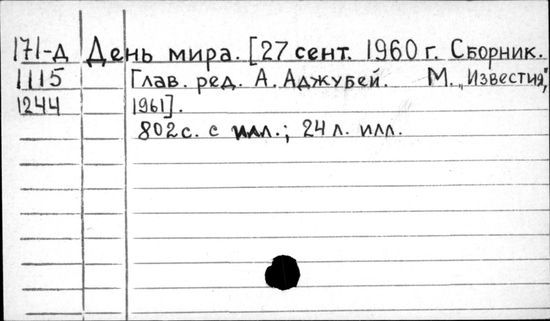 171-д День мира. [27 сент. 1960 г. Сборник.
1115 Глав. ред. А. Аджубей. М. „Известия",
1244 1961].
802 с. с илл.; 24 л. илл.